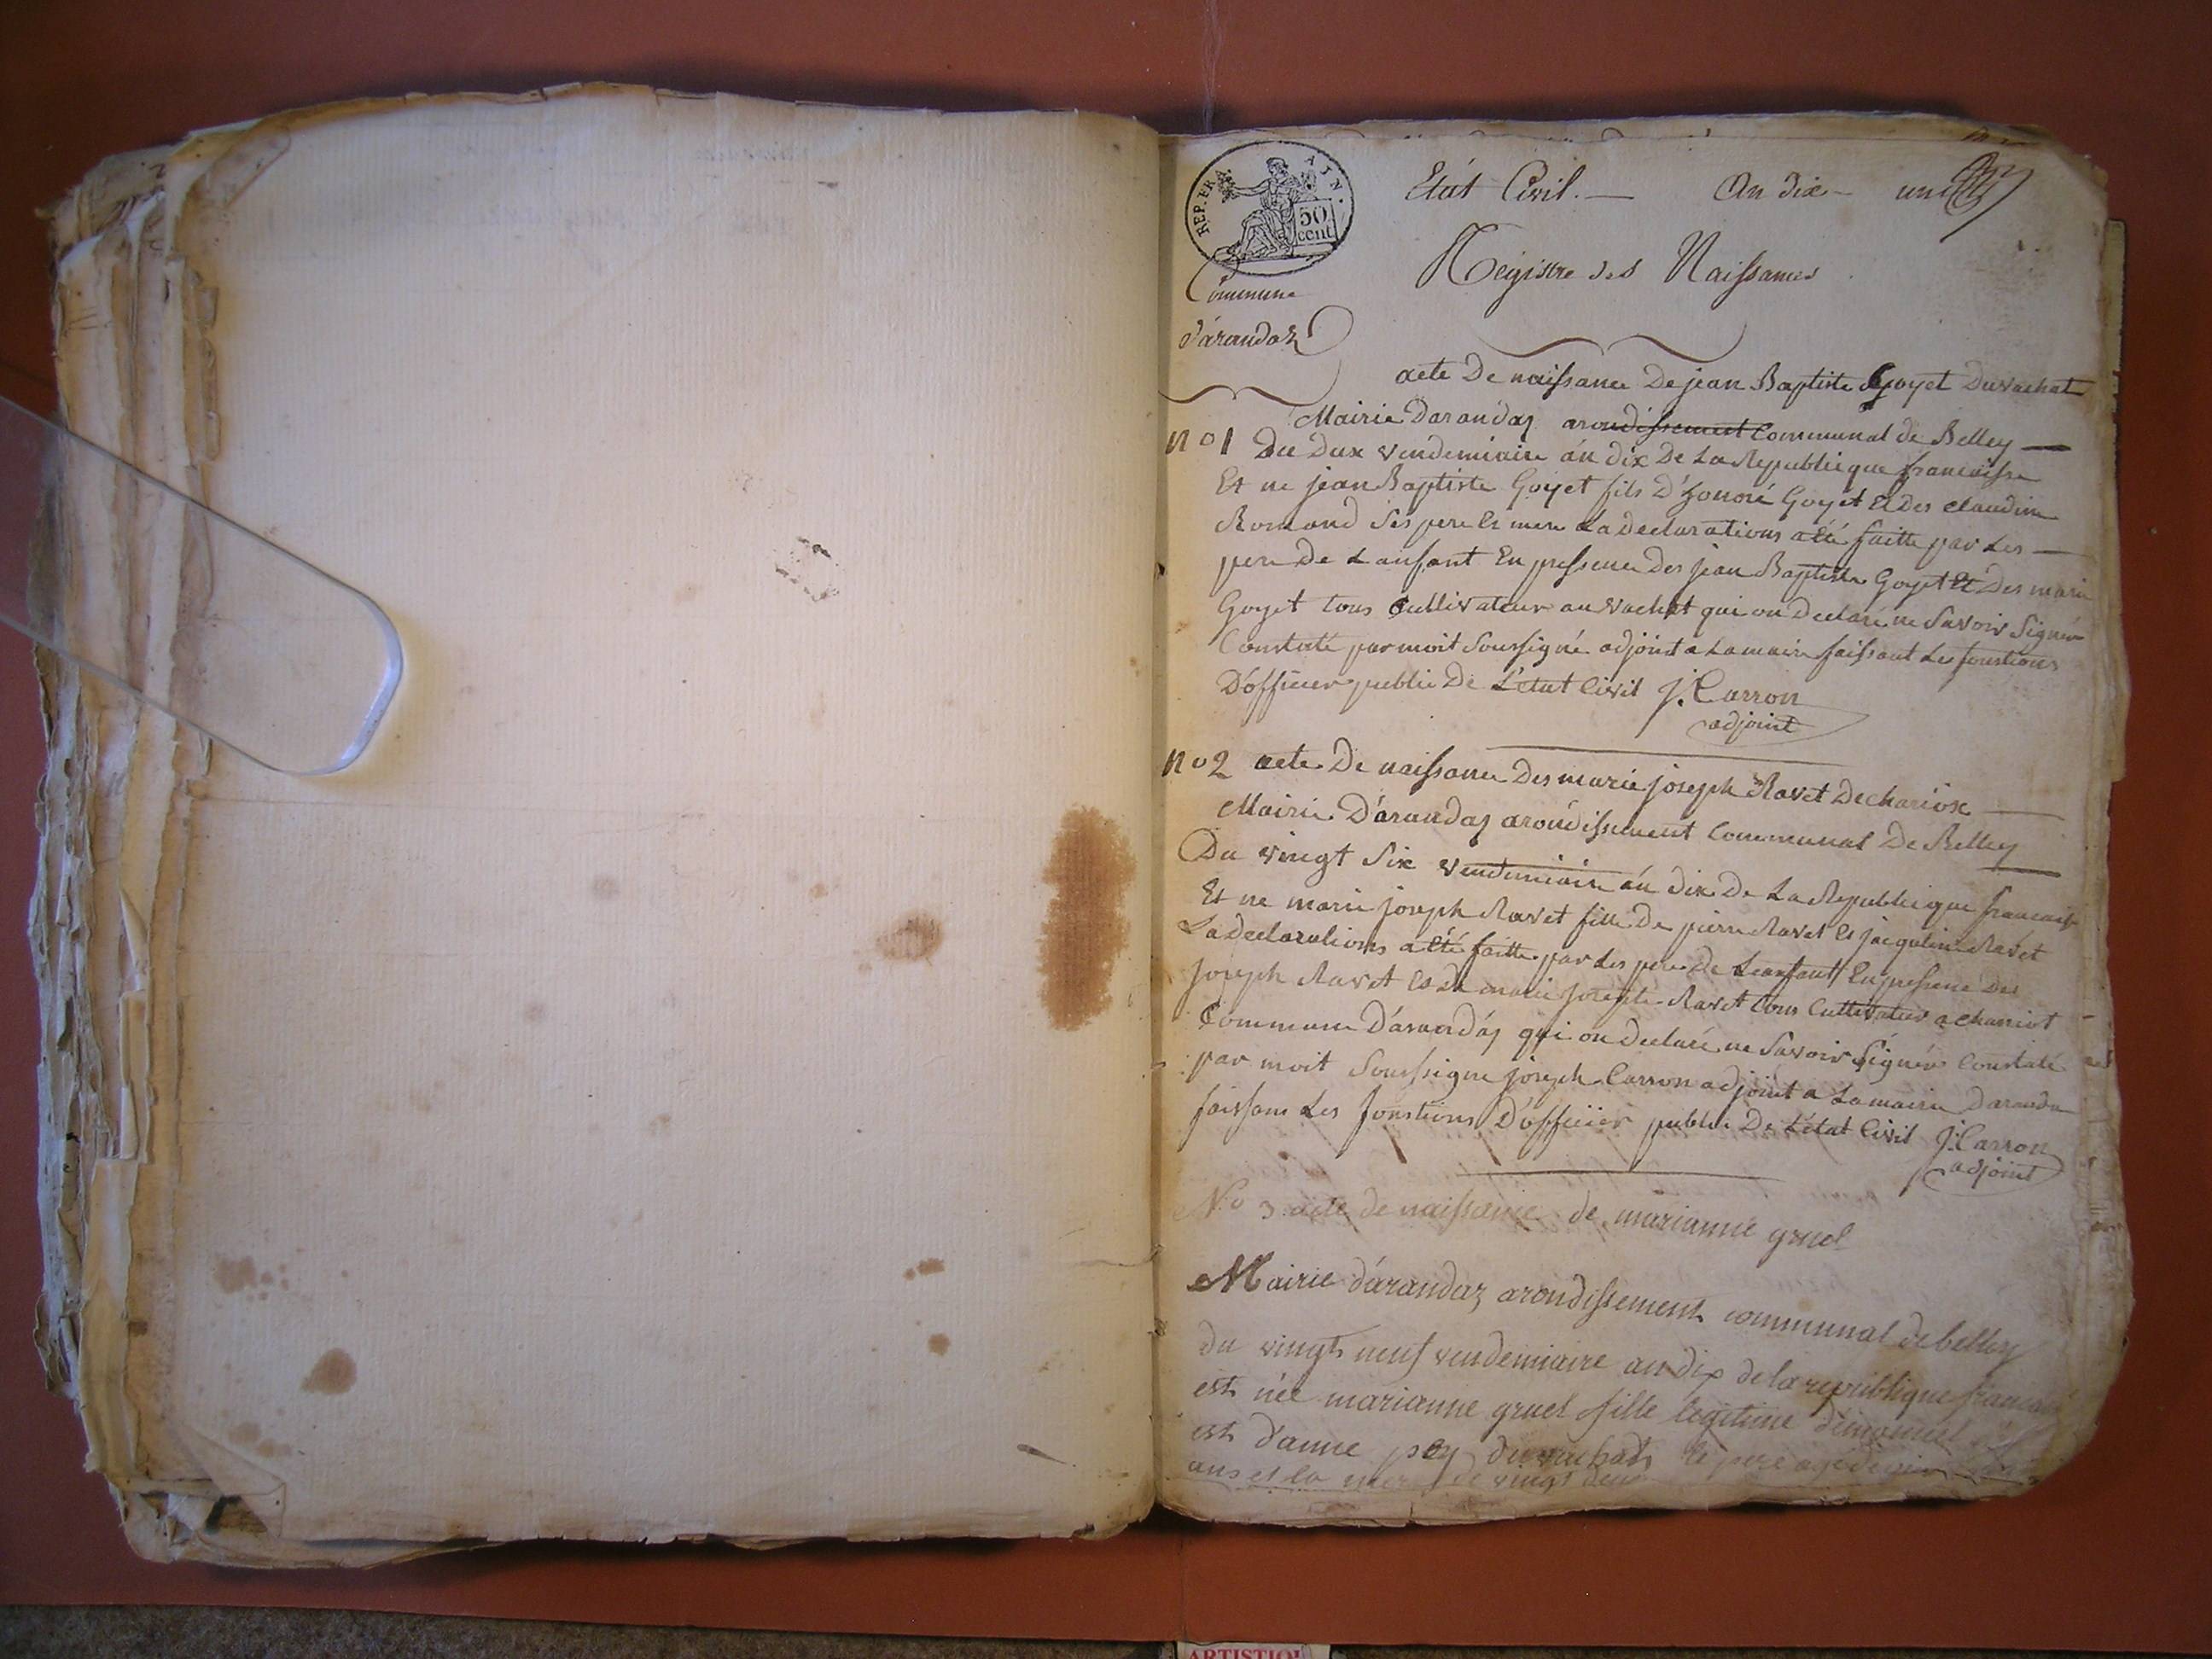 REP. FRA. AIN.
50
cent
Etát Civil. — An dix — un
Commune
d'árandaz
Régistre des Naissances
acte De naissance De jean Baptiste Goyet Duvachat
Mairie Darandaz arondissement Communal de Belley —
n° 1 Du Dux vendemiaire án dix De La Republique francaisse
Et ne jean Baptiste Goyet fils D'honoré Goyet Et Des claudine
Romand ses pere Et mere La Declarations a été faitte par Les —
pere De L'anfant En pressence Des jean Baptiste Goyet Et Des marie
Goyet tous Cultivateur au vachat qui on Declaré ne Savoir Signér
Constaté par moit Soussigné adjoint a La mairie faissant Les fonstions
D'officier public De L'état Civil J. Carron
adjoint
n° 2 acte De naissance Des marie joseph Ravet De chariox —
Mairie D'árandaz aroúdissement Communal De Belley
Du vingt Six vendemiaire án dix De La Republique francaise
Et ne marie joseph Ravet fille De pierre Ravet Et jacqueline Ravet
La Declarations a été faitte par Les pere De Leanfant En pressence Des
Joseph Ravet Et De marie Joseph Ravet tous Cultivateur a chariot
Commune D'árandáz qui on Declaré ne Savoir Signér Constaté
par moit Soussigne joseph Carron adjoint a La mairie D'aranda
faissans Les fonstions D'officiér public De L'état Civil J. Carron
adjoint
N° 3 acte de naissance de marianne gruel
Mairie d'árandaz arondissement communal de belley
du vingt neuf vendemiaire an dix de la republique francaise
est née marianne gruel fille legitime d'émanuel
est d'anne pey du vachat le pere age de
ans et la mere de vingt deux
ARTISTIQU